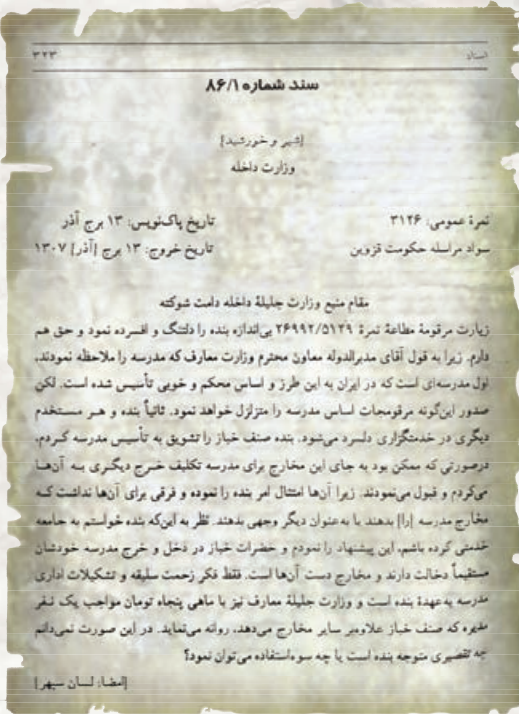 اسناد ۳۲۳
سند شماره ۸۶/۱
[شیر و خورشید]
وزارت داخله
نمرهٔ عمومی: ۳۱۲۶ تاریخ پاک‌نویس: ۱۳ برج آذر
سواد مراسله حکومت قزوین تاریخ خروج: ۱۳ برج [آذر] ۱۳۰۷
مقام منیع وزارت جلیلهٔ داخله دامت شوکته
زیارت مرقومهٔ مطاعهٔ نمرهٔ ۲۶۹۹۲/۵۱۴۹ بی‌اندازه بنده را دلتنگ و افسرده نمود و حق هم
دارم. زیرا به قول آقای مدیرالدوله معاون محترم وزارت معارف که مدرسه را ملاحظه نمودند،
اول مدرسه‌ای است که در ایران به این طرز و اساس محکم و خوبی تأسیس شده است. لکن
صدور این‌گونه مرقومجات اساس مدرسه را متزلزل خواهد نمود. ثانیاً بنده و هر مستخدم
دیگری در خدمتگزاری دلسرد می‌شود. بنده صنف خباز را تشویق به تأسیس مدرسه کردم،
درصورتی که ممکن بود به جای این مخارج برای مدرسه تکلیف خرج دیگری به آن‌ها
می‌کردم و قبول می‌نمودند. زیرا آن‌ها امتثال امر بنده را نموده و فرقی برای آن‌ها نداشت که
مخارج مدرسه [را] بدهند یا به‌عنوان دیگر وجهی بدهند. نظر به این‌که بنده خواستم به جامعه
خدمتی کرده باشم، این پیشنهاد را نمودم و حضرات خباز در دخل و خرج مدرسه خودشان
مستقیماً دخالت دارند و مخارج دست آن‌ها است. فقط فکر زحمت سلیقه و تشکیلات اداری
مدرسه به‌عهدهٔ بنده است و وزارت جلیلهٔ معارف نیز با ماهی پنجاه تومان مواجب یک نفر
مدیره که صنف خباز علاوه‌بر سایر مخارج می‌دهد، روانه می‌نماید. در این صورت نمی‌دانم
چه تقصیری متوجه بنده است یا چه سوءاستفاده می‌توان نمود؟
[امضا: لسان سپهر]